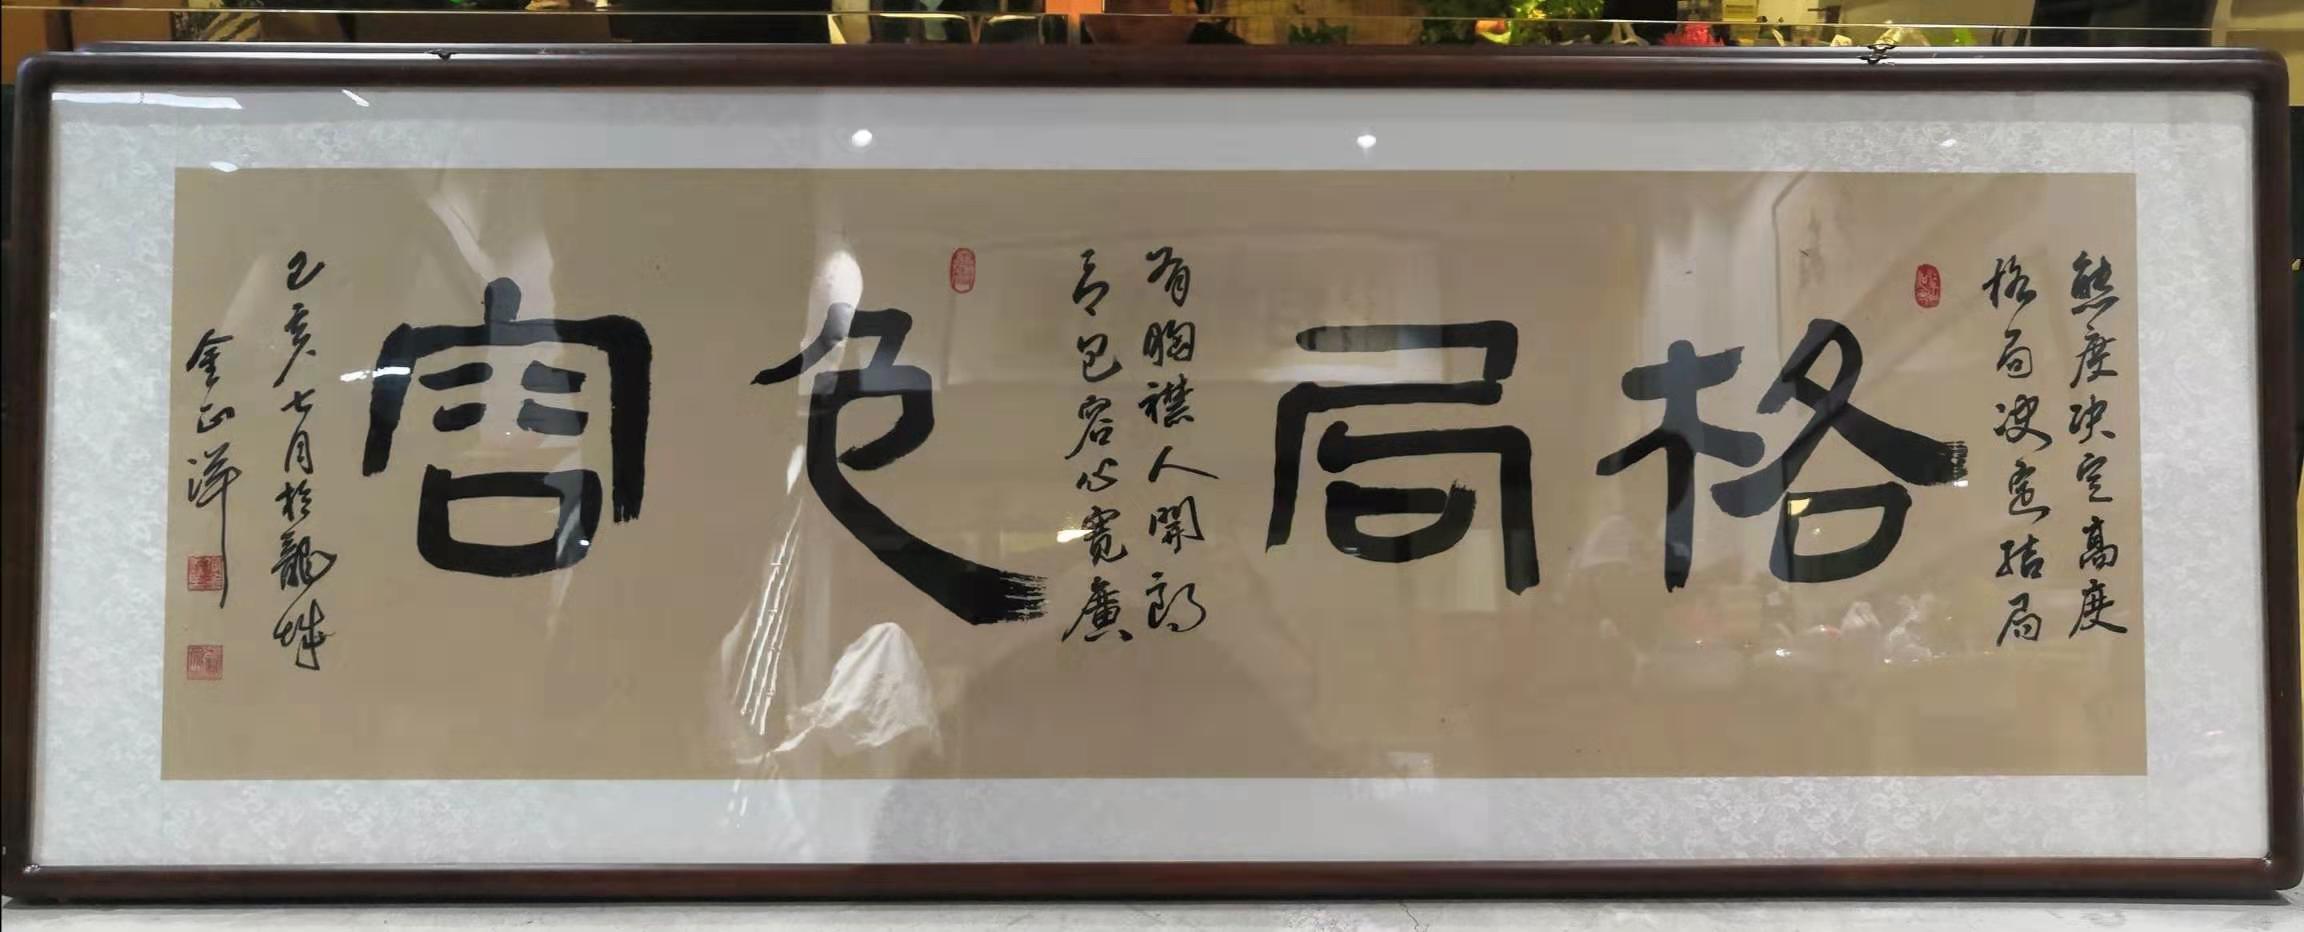 態度决定髙度
格局决定结局
格局
有胸襟人開朗
可包容心寬廣
包容
己亥七月於龍城
金正洋